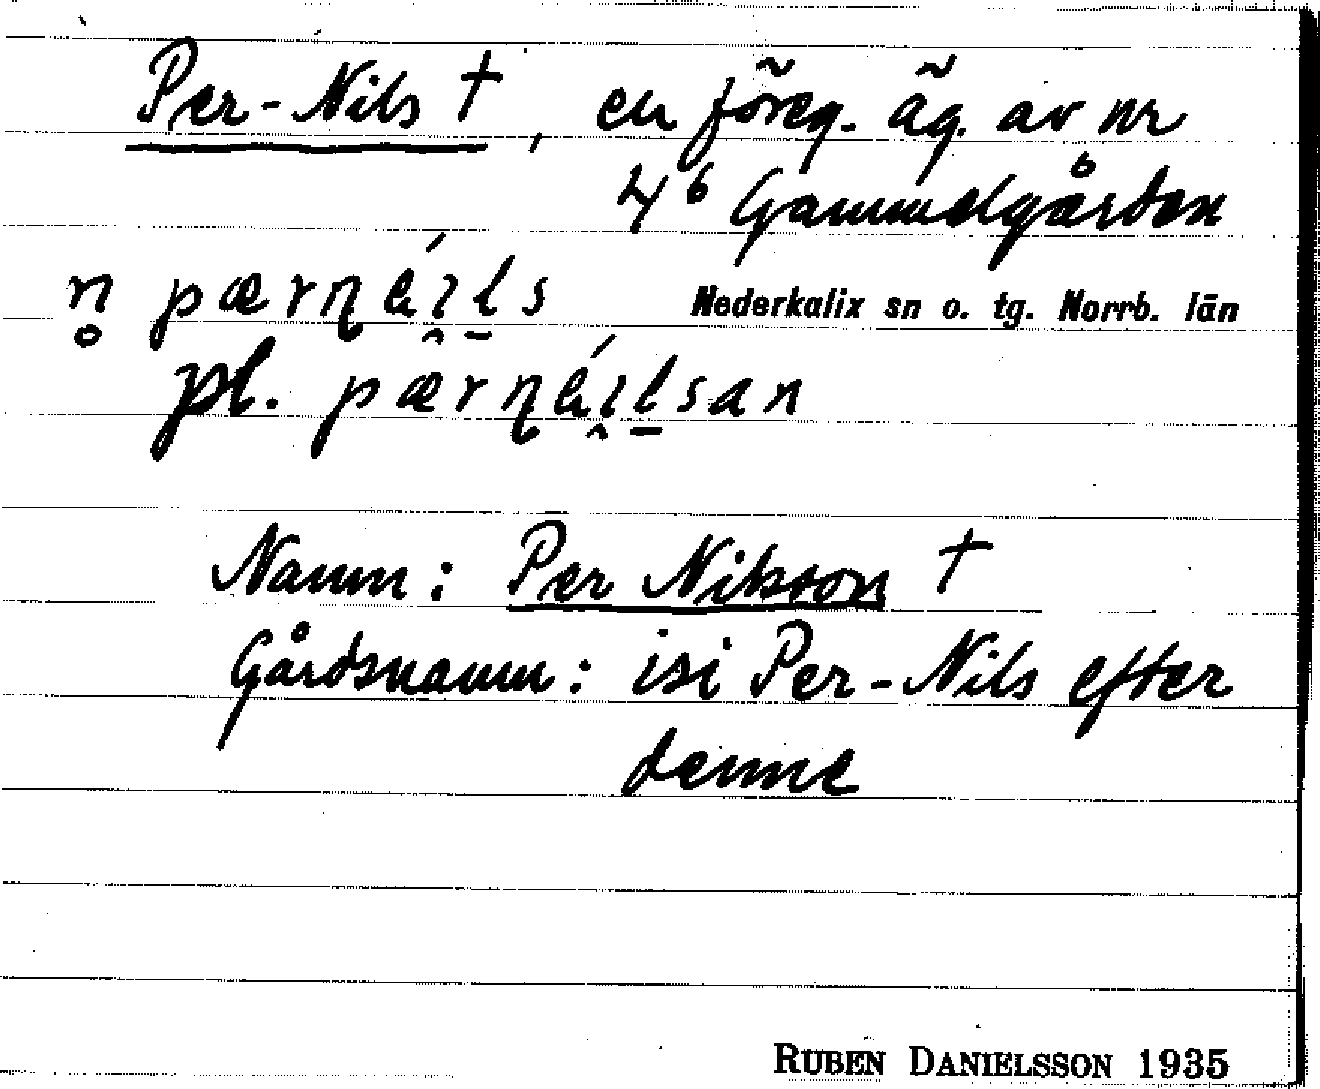 Per-Nils †, en föreg. äg. av nr
4⁶ Gammelgården
n̥ pærɳéı̯l̲s Nederkalix sn o. tg. Norrb. län
pl. pærɳéı̯l̲san
Namn: Per Nilsson †
Gårdsnamn: isi Per-Nils efter
denne
RUBEN DANIELSSON 1935